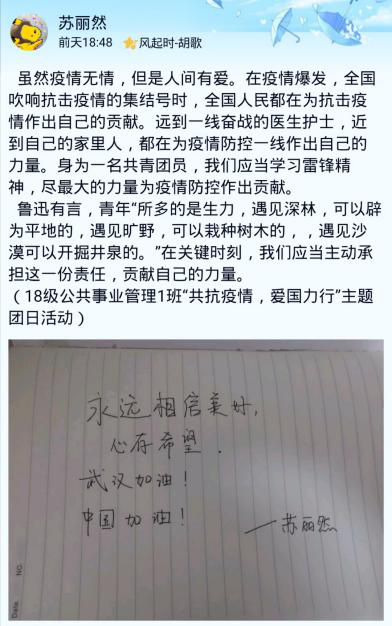 苏丽然
前天18:48 风起时-胡歌
虽然疫情无情，但是人间有爱。在疫情爆发，全国
吹响抗击疫情的集结号时，全国人民都在为抗击疫
情作出自己的贡献。远到一线奋战的医生护士，近
到自己的家里人，都在为疫情防控一线作出自己的
力量。身为一名共青团员，我们应当学习雷锋精
神，尽最大的力量为疫情防控作出贡献。
鲁迅有言，青年“所多的是生力，遇见深林，可以辟
为平地的，遇见旷野，可以栽种树木的，，遇见沙
漠可以开掘井泉的。”在关键时刻，我们应当主动承
担这一份责任，贡献自己的力量。
（18级公共事业管理1班“共抗疫情，爱国力行”主题
团日活动）
永远相信美好，
心存希望．
武汉加油！
中国加油！
一苏丽然
Date.
NO.